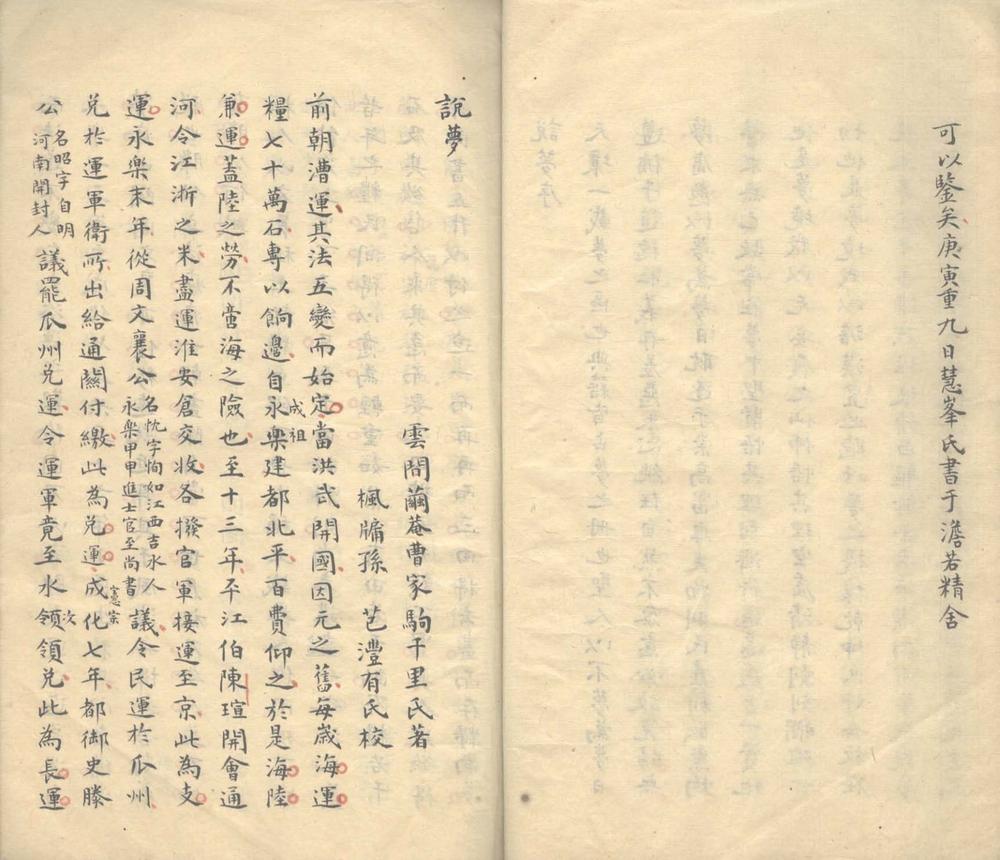 可以鑒矣庚寅重九日慧峯氏書于澹若精舍
說夢
雲間繭菴曹家駒千里氏著
楓牖孫芑灃有氏校
前朝漕運其法五變而始定當洪武開國因元之舊每歲海運
糧七十萬石專以餉邊自永樂成祖建都北平百費仰之於是海陸
兼運蓋陸之勞不啻海之險也至十三年平江伯陳瑄開會通
河令江浙之米盡運淮安倉交收各撥官軍接運至京此為支
運永樂末年從周文襄公名忱字恂如江西吉水人永樂甲申進士官至尚書議令民運於瓜州
兌於運軍衛所出給通關付繳此為兌運成化憲宗七年都御史滕
公名昭字自明河南開封人議罷瓜州兌運令運軍竟至水次領兌此為長運